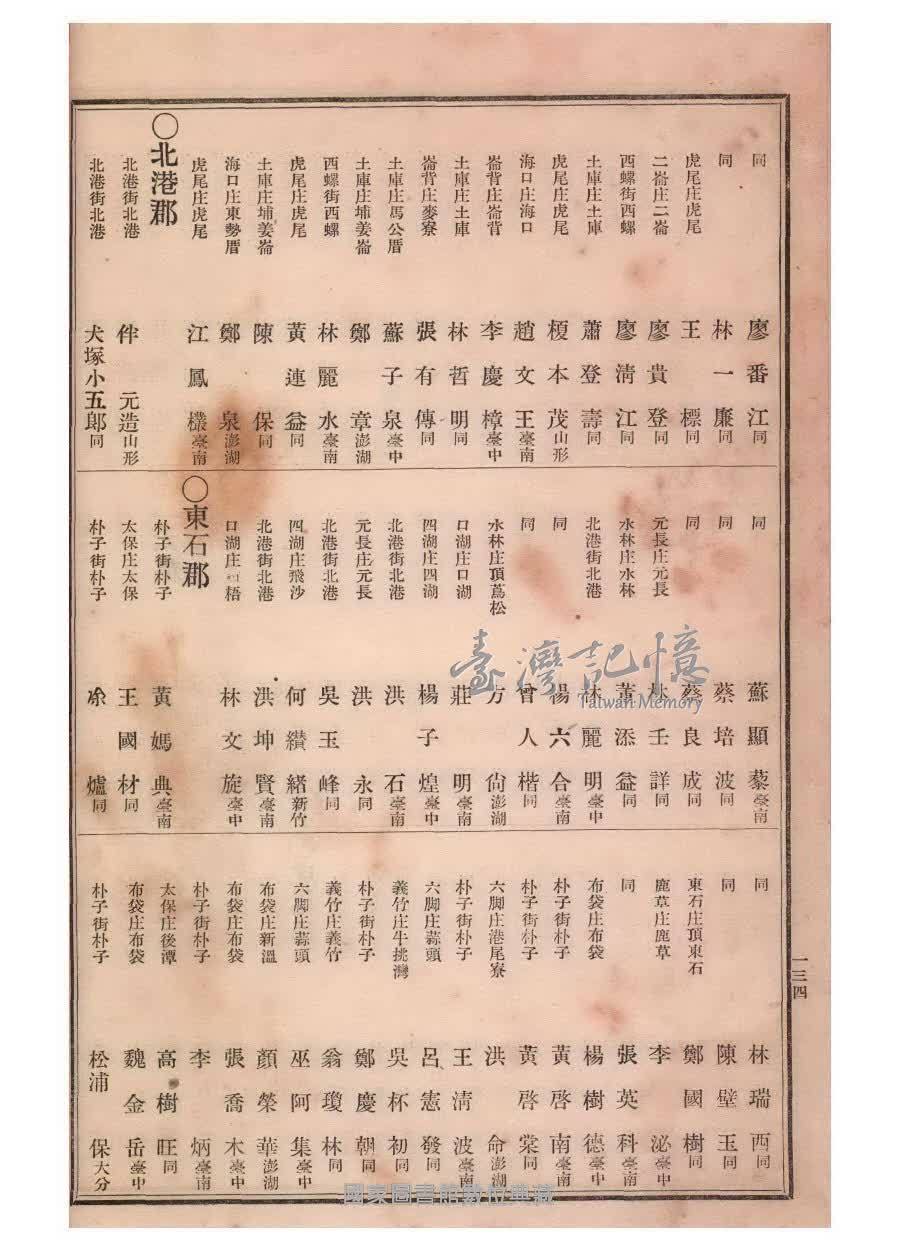 同 廖番江同
同 林一廉同
虎尾庄虎尾 王標同
二崙庄二崙 廖貴登同
西螺街西螺 廖清江同
土庫庄土庫 蕭登壽同
虎尾庄虎尾 榎本茂山形
海口庄海口 趙文王臺南
崙背庄崙背 李慶樟臺中
土庫庄土庫 林哲明同
崙背庄麥寮 張有傳同
土庫庄馬公厝 蘇子泉臺中
土庫庄埔姜崙 鄭章澎湖
西螺街西螺 林麗水臺南
虎尾庄虎尾 黃連益同
土庫庄埔姜崙 陳保同
海口庄東勢厝 鄭泉澎湖
虎尾庄虎尾 江鳳檨臺南
〇北港郡
北港街北港 伴元造山形
北港街北港 犬塚小五郎同
同 蘇顯藜臺南
同 蔡培波同
同 蔡良成同
元長庄元長 林壬詳同
水林庄水林 董添益同
北港街北港 林麗明臺中
同 楊六合臺南
同 曾人楷同
水林庄頂蔦松 方尙澎湖
口湖庄口湖 莊明臺南
四湖庄四湖 楊子煌臺中
北港街北港 洪石臺南
元長庄元長 洪永同
北港街北港 吳玉峰同
四湖庄飛沙 何纘緒新竹
北港街北港 洪坤賢臺南
口湖庄 梧 林文旋臺中
〇東石郡
朴子街朴子 黃媽典臺南
太保庄太保 王國材同
朴子街朴子 爐同
同 林瑞西同
同 陳壁玉同
東石庄頂東石 鄭國樹同
鹿草庄鹿草 李泌臺中
同 張英科臺南
布袋庄布袋 楊樹德臺中
朴子街朴子 黃啓南臺南
朴子街朴子 黃啓棠同
六脚庄港尾寮 洪命澎湖
朴子街朴子 王淸波臺南
六脚庄蒜頭 呂憲發同
義竹庄牛挑灣 吳杯初同
朴子街朴子 鄭慶朝同
義竹庄義竹 翁瓊林同
六脚庄蒜頭 巫阿集臺中
布袋庄新溫 顏榮華澎湖
布袋庄布袋 張喬木臺中
朴子街朴子 李炳臺南
太保庄後潭 高樹旺同
布袋庄布袋 魏金岳臺中
朴子街朴子 松浦保大分
一三四
臺灣記憶
Taiwan Memory
國家圖書館數位典藏